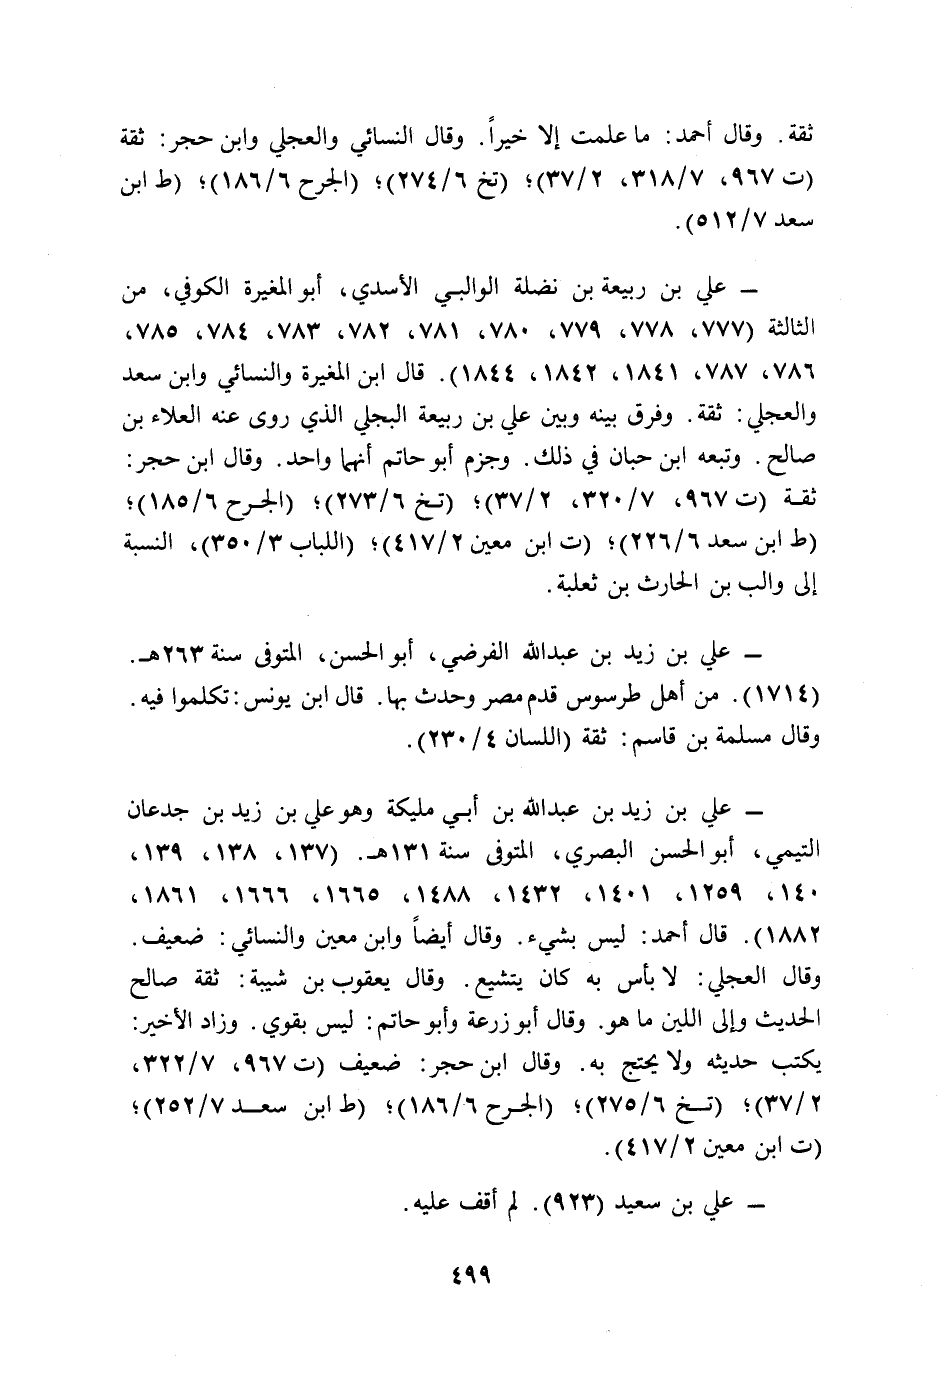 ثقة. وقال أحمد: ما علمت إلا خيراً. وقال النسائي والعجلي وابن حجر: ثقة
(ت ٩٦٧، ٣١٨/٧، ٣٧/٢)؛ (تخ ٢٧٤/٦)؛ (الجرح ١٨٦/٦)؛ (ط ابن
سعد ٥١٢/٧).
– علي بن ربيعة بن نضلة الوالبـي الأسدي، أبو المغيرة الكوفي، من
الثالثة (٧٧٧، ٧٧٨، ٧٧٩، ٧٨٠، ٧٨١، ٧٨٢، ٧٨٣، ٧٨٤، ٧٨٥،
٧٨٦، ٧٨٧، ١٨٤١، ١٨٤٢، ١٨٤٤). قال ابن المغيرة والنسائي وابن سعد
والعجلي: ثقة. وفرق بينه وبين علي بن ربيعة البجلي الذي روى عنه العلاء بن
صالح. وتبعه ابن حبان في ذلك. وجزم أبو حاتم أنهما واحد. وقال ابن حجر:
ثقـة (ت ٩٦٧، ٣٢٠/٧، ٣٧/٢)؛ (تـخ ٢٧٣/٦)؛ (الجـرح ١٨٥/٦)؛
(ط ابن سعد ٢٢٦/٦)؛ (ت ابن معين ٤١٧/٢)؛ (اللباب ٣٥٠/٣)، النسبة
إلى والب بن الحارث بن ثعلبة.
– علي بن زيد بن عبدالله الفرضي، أبو الحسن، المتوفى سنة ٢٦٣هـ.
(١٧١٤). من أهل طرسوس قدم مصر وحدث بها. قال ابن يونس: تكلموا فيه.
وقال مسلمة بن قاسم: ثقة (اللسان ٢٣٠/٤).
– علي بن زيد بن عبدالله بن أبـي مليكة وهو علي بن زيد بن جدعان
التيمي، أبو الحسن البصري، المتوفى سنة ١٣١هـ. (١٣٧، ١٣٨، ١٣٩،
١٤٠، ١٢٥٩، ١٤٠١، ١٤٣٢، ١٤٨٨، ١٦٦٥، ١٦٦٦، ١٨٦١،
١٨٨٢). قال أحمد: ليس بشيء. وقال أيضاً وابن معين والنسائي: ضعيف.
وقال العجلي: لا بأس به كان يتشيع. وقال يعقوب بن شيبة: ثقة صالح
الحديث وإلى اللين ما هو. وقال أبو زرعة وأبو حاتم: ليس بقوي. وزاد الأخير:
يكتب حديثه ولا يحتج به. وقال ابن حجر: ضعيف (ت ٩٦٧، ٣٢٢/٧،
٣٧/٢)؛ (تــخ ٢٧٥/٦)؛ (الجـرح ١٨٦/٦)؛ (ط ابن سعــد ٢٥٢/٧)؛
(ت ابن معين ٤١٧/٢).
– علي بن سعيد (٩٢٣). لم أقف عليه.
٤٩٩